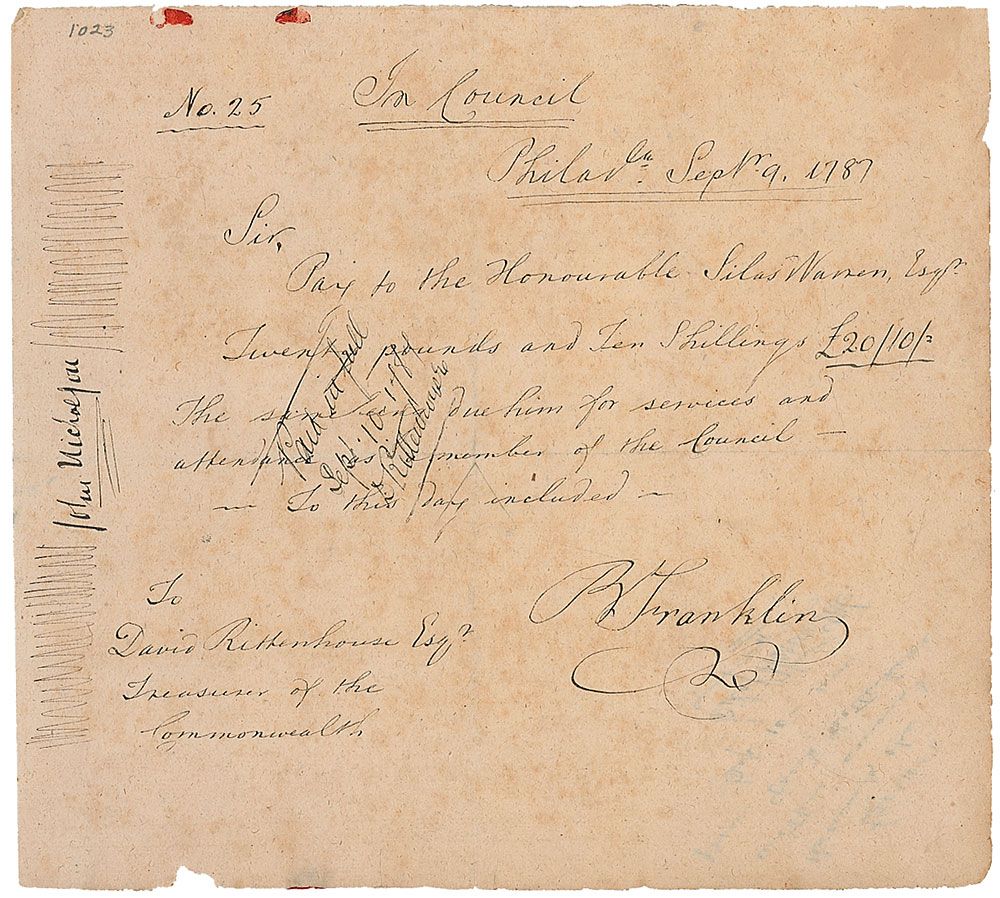 1023
No. 25
In Council
Philad.ia Septr. 9. 1787
Sir,
Pay to the Honourable Silas Warren, Esqr.
Twenty pounds and Ten Shillings £20/10/=
The same being due him for services and
attendance as member of the Council —
— To this day included —
Paid in full
Sept. 10. 1787
D Rittenhouse
John Nicholson
B Franklin
To
David Rittenhouse Esqr.
Treasurer of the
Commonwealth